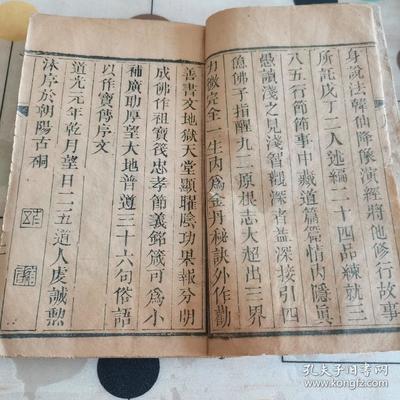 身說法韓仙降像演經將他修行故事
所託戊丁二人述編二十四品練就三
八五行節節事中藏道篇篇情內隱真
愚讀淺之見淺智觀深者益深接引四
僬佛子指醒九二原根志大超出三界
力徵完全一生內為金丹秘訣外作勸
善書文地獄天堂顯耀陰功果報分明
成佛作祖寶筏忠孝節義銘箴可為小
補廣助厚望大地普道三十六句俗語
以作寶傳序文
道光元年乾月望日二五道人虔誠熏
沐序於朝陽古硐
孔夫子旧书网
www.kongfz.com